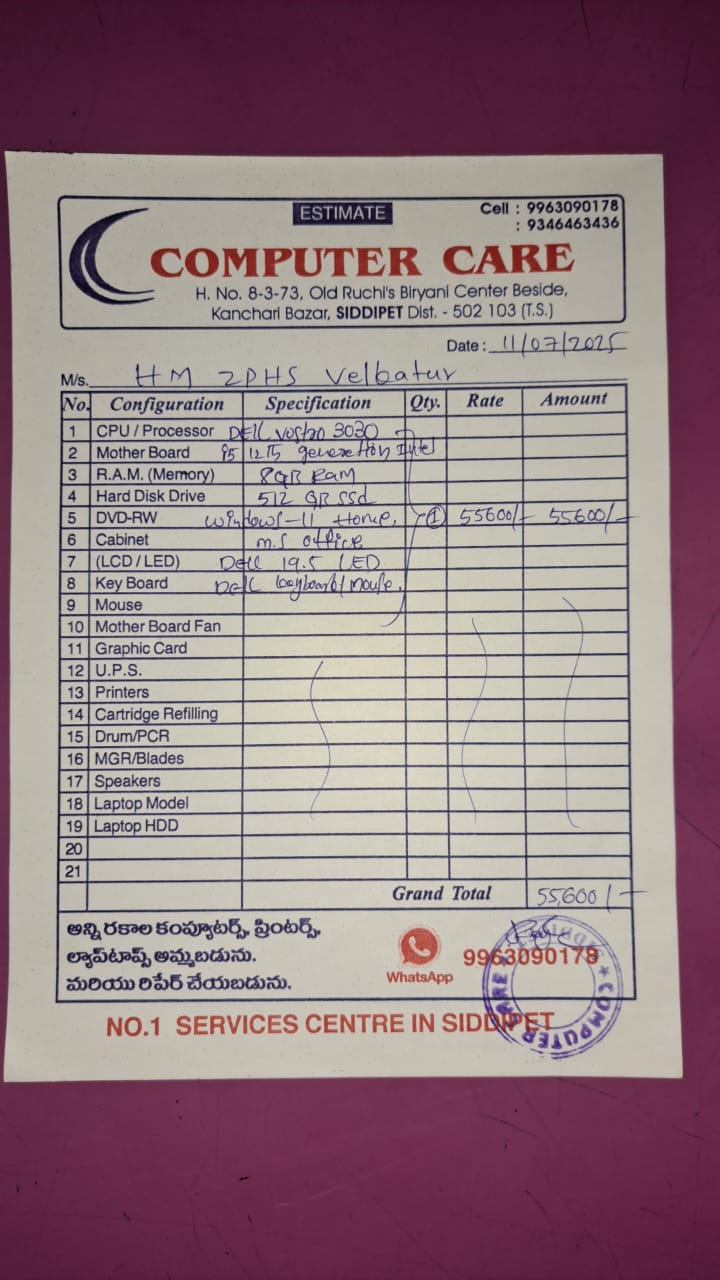 ESTIMATE
Cell : 9963090178
: 9346463436
COMPUTER CARE
H. No. 8-3-73, Old Ruchi's Biryani Center Beside,
Kanchari Bazar, SIDDIPET Dist. - 502 103 (T.S.)
Date : 11/07/2025
M/s. HM ZPHS Velbatur
No. Configuration Specification Qty. Rate Amount
1 CPU / Processor DELL Vostro 3030
2 Mother Board i5 12th generation Intel
3 R.A.M. (Memory) 8GB RAM
4 Hard Disk Drive 512 GB SSd
5 DVD-RW Windows-11 Home, 1 55600/- 55600/-
6 Cabinet M.S office
7 (LCD / LED) Dell 19.5 LED
8 Key Board Dell keyboard/mouse.
9 Mouse
10 Mother Board Fan
11 Graphic Card
12 U.P.S.
13 Printers
14 Cartridge Refilling
15 Drum/PCR
16 MGR/Blades
17 Speakers
18 Laptop Model
19 Laptop HDD
20
21
Grand Total 55,600/-
అన్ని రకాల కంప్యూటర్స్, ప్రింటర్స్,
ల్యాప్‌టాప్స్ అమ్మబడును.
మరియు రిపేర్ చేయబడును.
WhatsApp
9963090178
NO.1 SERVICES CENTRE IN SIDDIPET
COMPUTER CARE